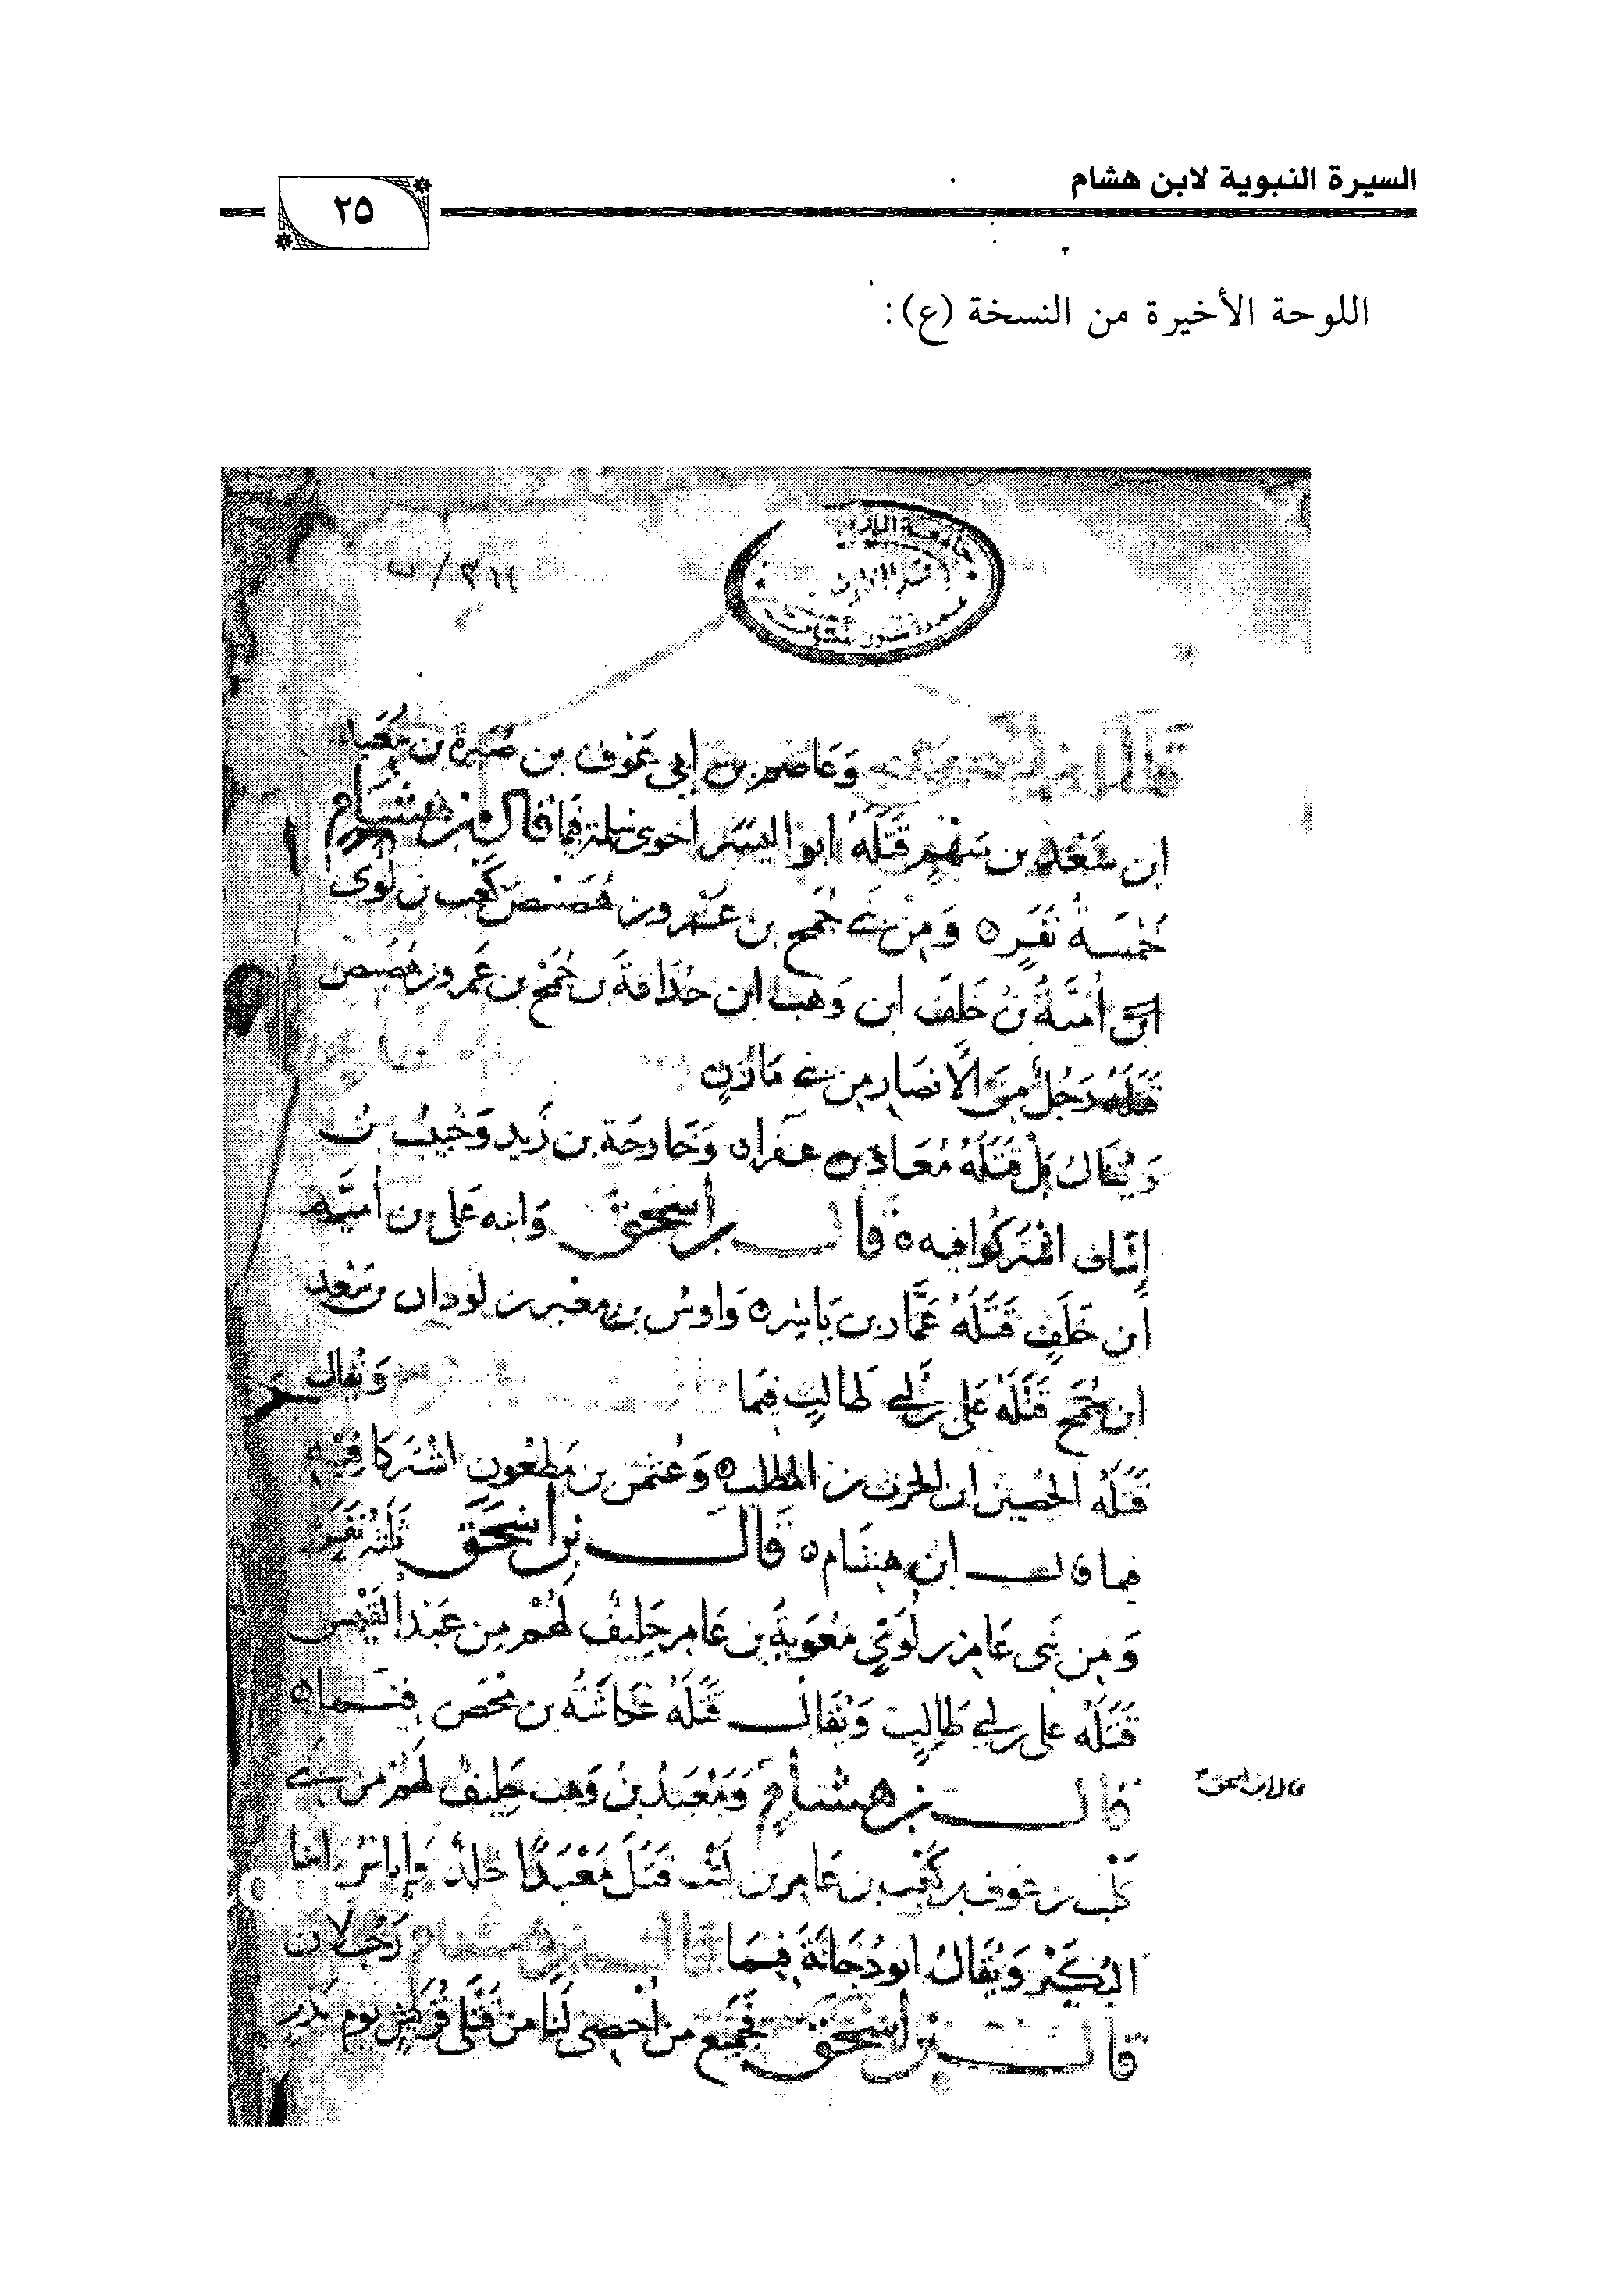 السيرة النبوية لابن هشام
٢٥
اللوحة الأخيرة من النسخة (ع):
وَعَاصم بن أبي عَوْف بن ضبيرة بن سُعَيد
ابن سَعْد بن سَهْم قَتَلَهُ ابو اليسر اخو بني سلمة فيما قال بن هشام
خمسَة نَفَرٍ ه وَمِنْ بني جُمح بن عَمْرو بن هُصَيْص بن كَعْب بن لوى
امَيَّةُ بنُ خَلَف ابن وَهب ابن حُذَافَةَ بن جُمَح بن عَمرو بن هُصَيص
قَتَلَهُ رَجُلٌ مِنَ الأَنصَار من بني مَازنٍ
وَيُقَالُ بل قَتَلَهُ مُعَاذ بن عَفراء وَخَارجَة بن زَيد وَخُبيبُ بنُ
إسَاف اشتركوا فيه ه قال بن اسحق وابنه عَلي بن أمَيَّه
ابن خَلَفٍ قَتَلَهُ عَمَّار بن يَاسِر ه وَاوسُ بن معير بن لوذان بن سَعْد
ابن جُمَح قَتَلَهُ عَلي بن ابي طَالبٍ فيمَا وَيُقَال
قَتَلَهُ الحُصين ابن الحرث بن المطلب ه وَعُثمن بن مَظعُون اشتَركا فيْه
فيما قال ابن هِشَام ه قَالَ بن اسْحَق ثلثه نَفَر
وَمِن بَني عَامِر بن لُوَيّ مُعوِيةُ بن عَامر حَلِيفٌ لَهُمْ مِن عَبْد القَيْس
قَتَلَهُ علي بن ابي طَالِبٍ وَيُقَالُ قَتَلَهُ عُكاشَةُ بن محْصَن فيما ه
قال بن هشام وَمَعْبَدُ بنُ وَهب حَليفٌ لَهُمْ من بني
قال ابن اسحق
كَلْب بن عَوف بن كَعْب بن عَامِر بن لَيْث قَتَلَ مَعْبَدًا خَالدٌ وَإياسٌ ابنا
البُكَيْر وَيُقَالُ ابو دُجَانَةَ فيمَا قال بن هشام رَجُلَان
قال بن اسحق فجميع من أُحْصي لَنا من قَتلى قُرَيش يَوم بَدرٍ